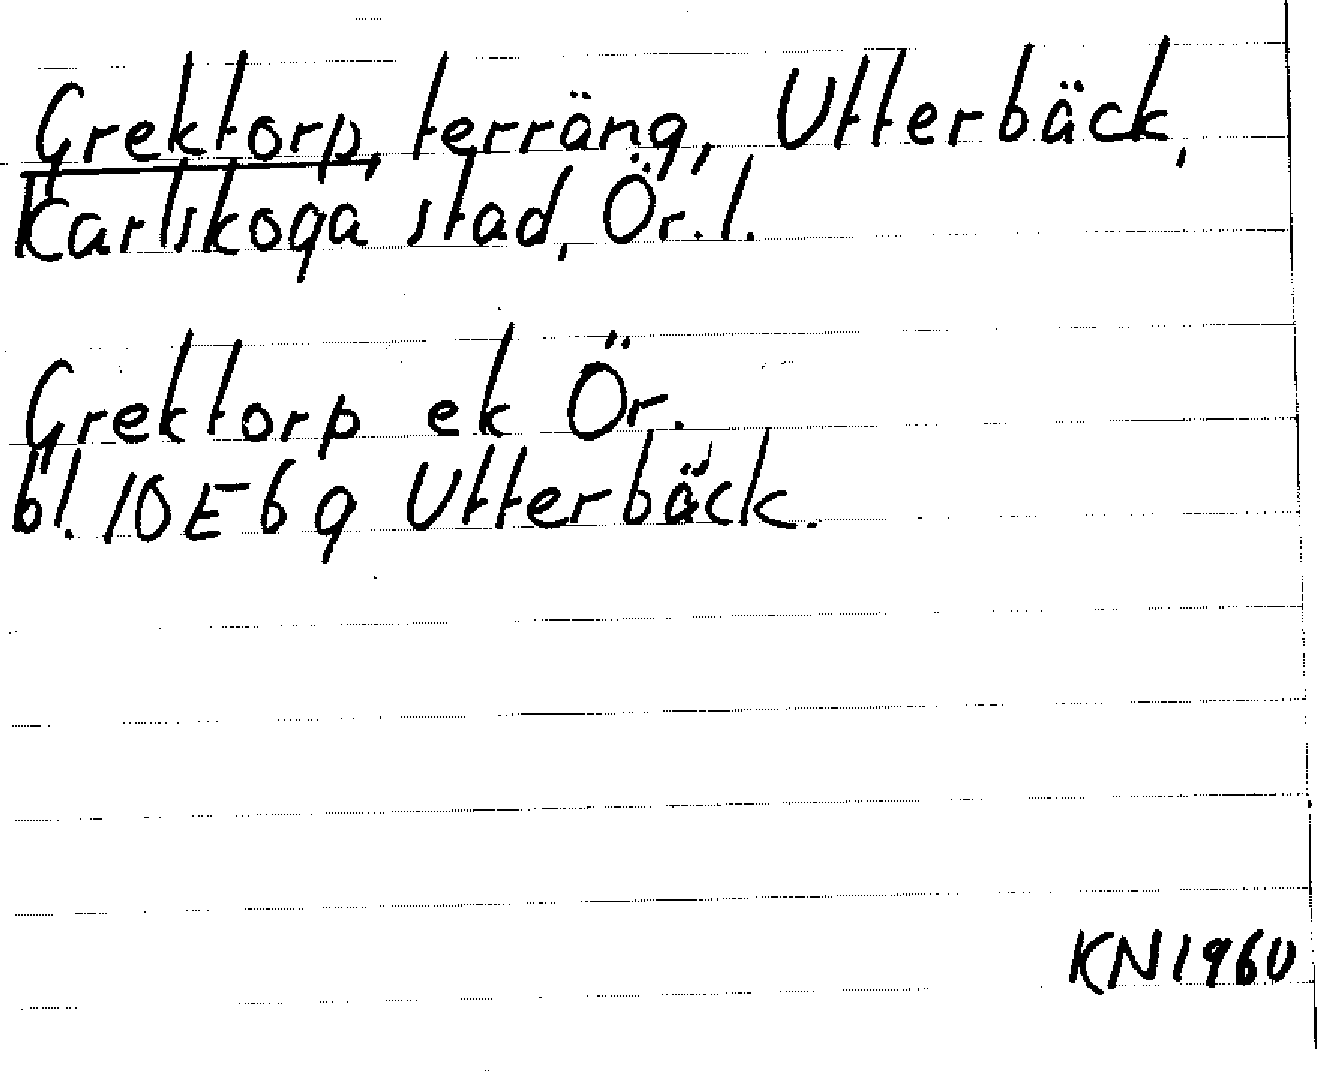 Grektorp, terräng, Utterbäck,
Karlskoga stad, Ör. l.
Grektorp ek Ör.
bl. 10E6g Utterbäck.
KN 1960